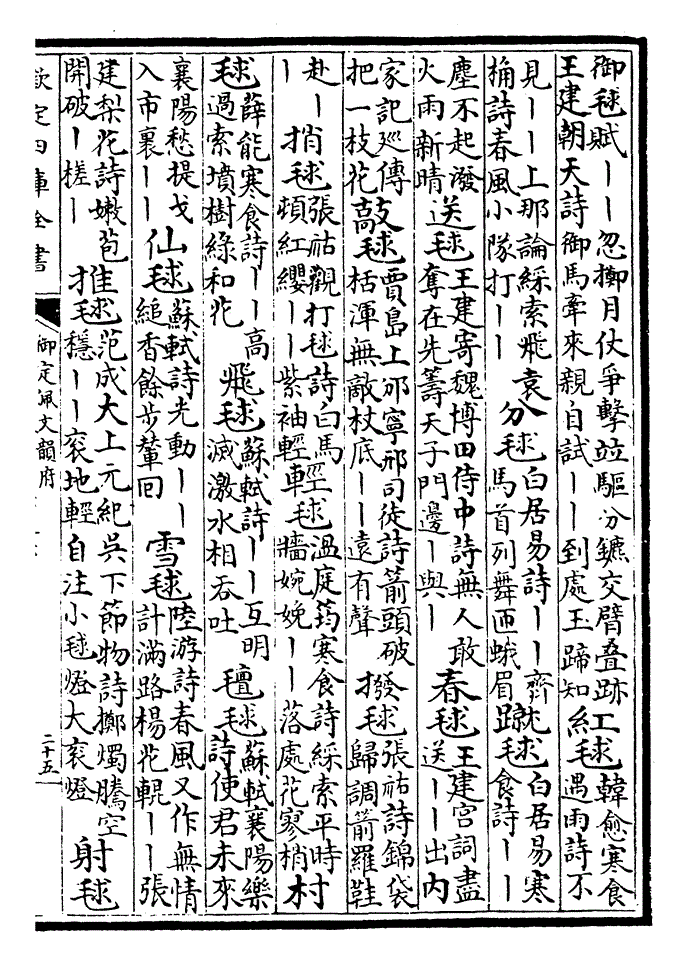 御毬賦丨丨忽擲月仗爭擊竝驅分鑣交臂叠跡王建朝天詩御馬牽來親自試丨丨到處玉蹄知 紅毬 韓愈寒食遇雨詩不
見丨丨上那論綵索飛袁桷詩春風小隊打丨丨 分毬 白居易詩丨丨齊馬首列舞匝蛾眉 蹴毬 白居易寒食詩丨丨
塵不起潑火雨新晴 送毬 王建寄魏博田侍中詩無人敢奪在先籌天子門邊丨與丨 春毬 王建宮詞盡送丨丨出內
家記巡傳把一枝花 敲毬 賈島上邠寧邢司徒詩箭頭破栝渾無敵杖底丨丨遠有聲 撥毬 張祜詩錦袋歸調箭羅鞋
赴丨丨 捎毬 張祜觀打毬詩白馬頓紅纓丨丨紫袖輕 輕毬 溫庭筠寒食詩綵索平時牆婉娩丨丨落處花寥梢 村
毬 薛能寒食詩丨丨高過索墳樹綠和花 飛毬 蘇軾詩丨丨互明滅激水相吞吐 氊毬 蘇軾襄陽樂詩使君未來
襄陽愁提戈入市裹丨丨 仙毬 蘇軾詩先動丨丨縋香餘步輦回 雪毬 陸游詩春風又作無情計滿路楊花輥丨丨張
建梨花詩嫩苞開破丨槎丨 推毬 范成大上元紀吳下節物詩擲燭騰空穩丨丨衮地輕自注小毬燈大衮燈 射毬
欽定四庫全書
御定佩文韻府
二十五